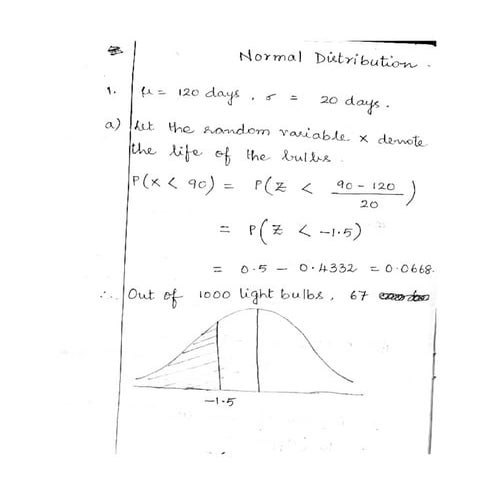 Normal Distribution.
1. μ = 120 days, σ = 20 days.
a) Let the random variable x denote
the life of the bulbs.
P(x < 90) = P(Z < 90 - 120 / 20)
= P(Z < -1.5)
= 0.5 - 0.4332 = 0.0668.
∴ Out of 1000 light bulbs, 67
-1.5